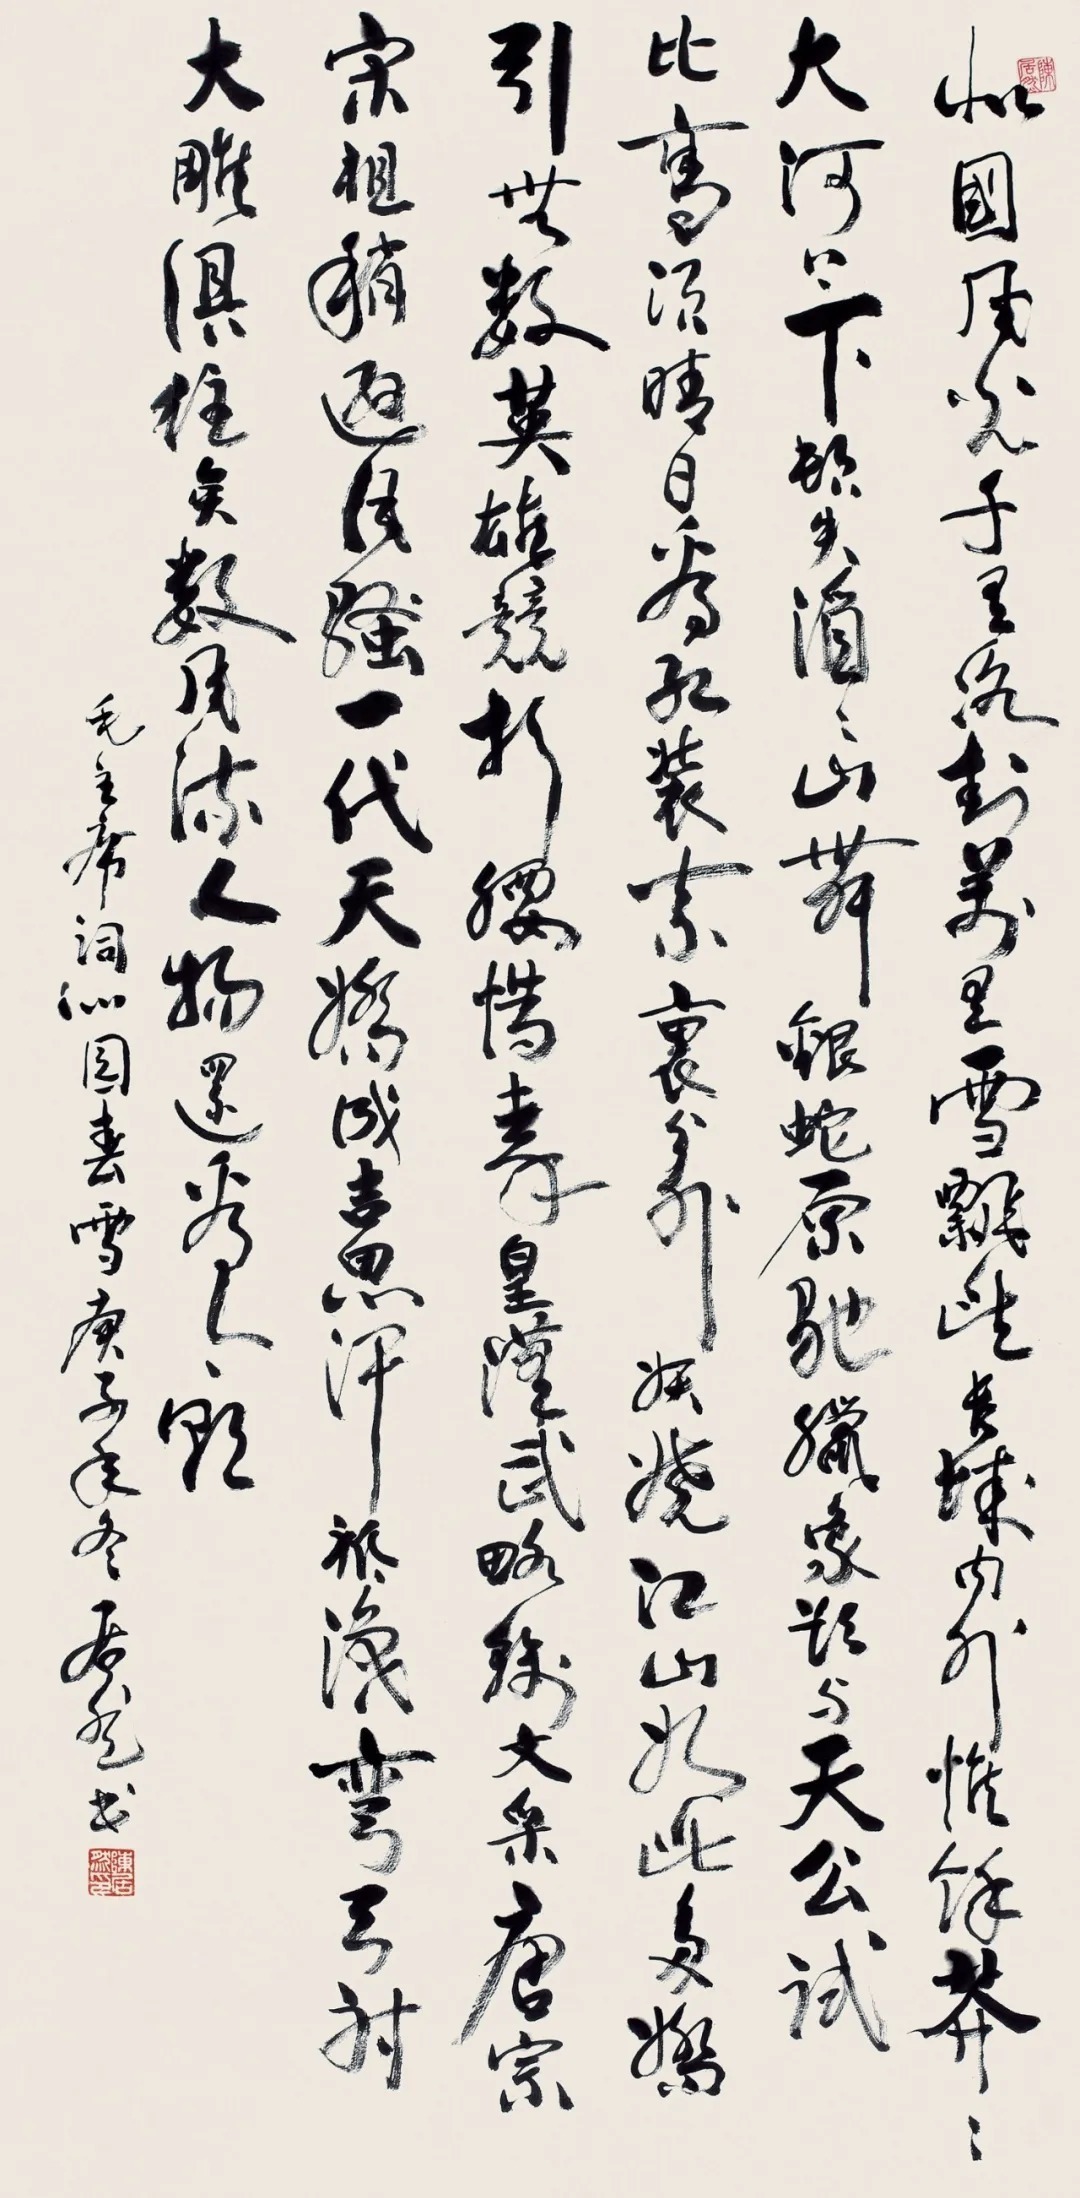 北國風光千里冰封萬里雪飄望長城内外惟餘莽〻
大河上下頓失滔〻山舞銀蛇原馳臘象欲与天公試
比高須晴日看紅裝素裹分外妖嬈江山如此多嬌
引無數英雄競折腰惜秦皇漢武略輸文采唐宗
宋祖稍遜風騷一代天嬌成吉思汗祗識彎弓射
大雕俱往矣數風流人物還看今朝
毛主席詞沁園春雪庚子年冬居然書
陳居然印